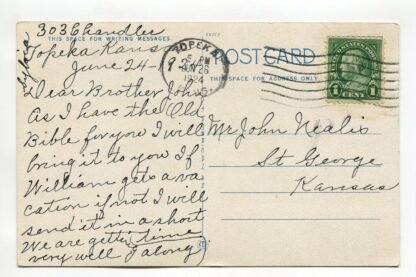 303 Chandler
THIS SPACE FOR WRITING MESSAGES
Topeka Kans
June 24 -
Dear Brother John
As I have the Old
Bible for you I will
bring it to you If
William gets a va
cation if not I will
send it in a short
time
We are gettin
very well along
Sylvia
TOPEKA
PM
1924
POST CARD
THIS SPACE FOR ADDRESS ONLY
1
1
Mr John Nealis
St George
Kansas